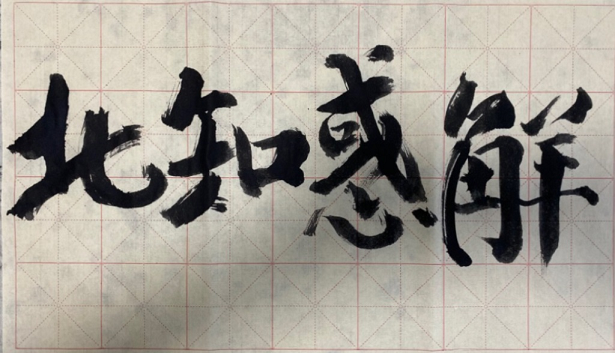 北知惑解